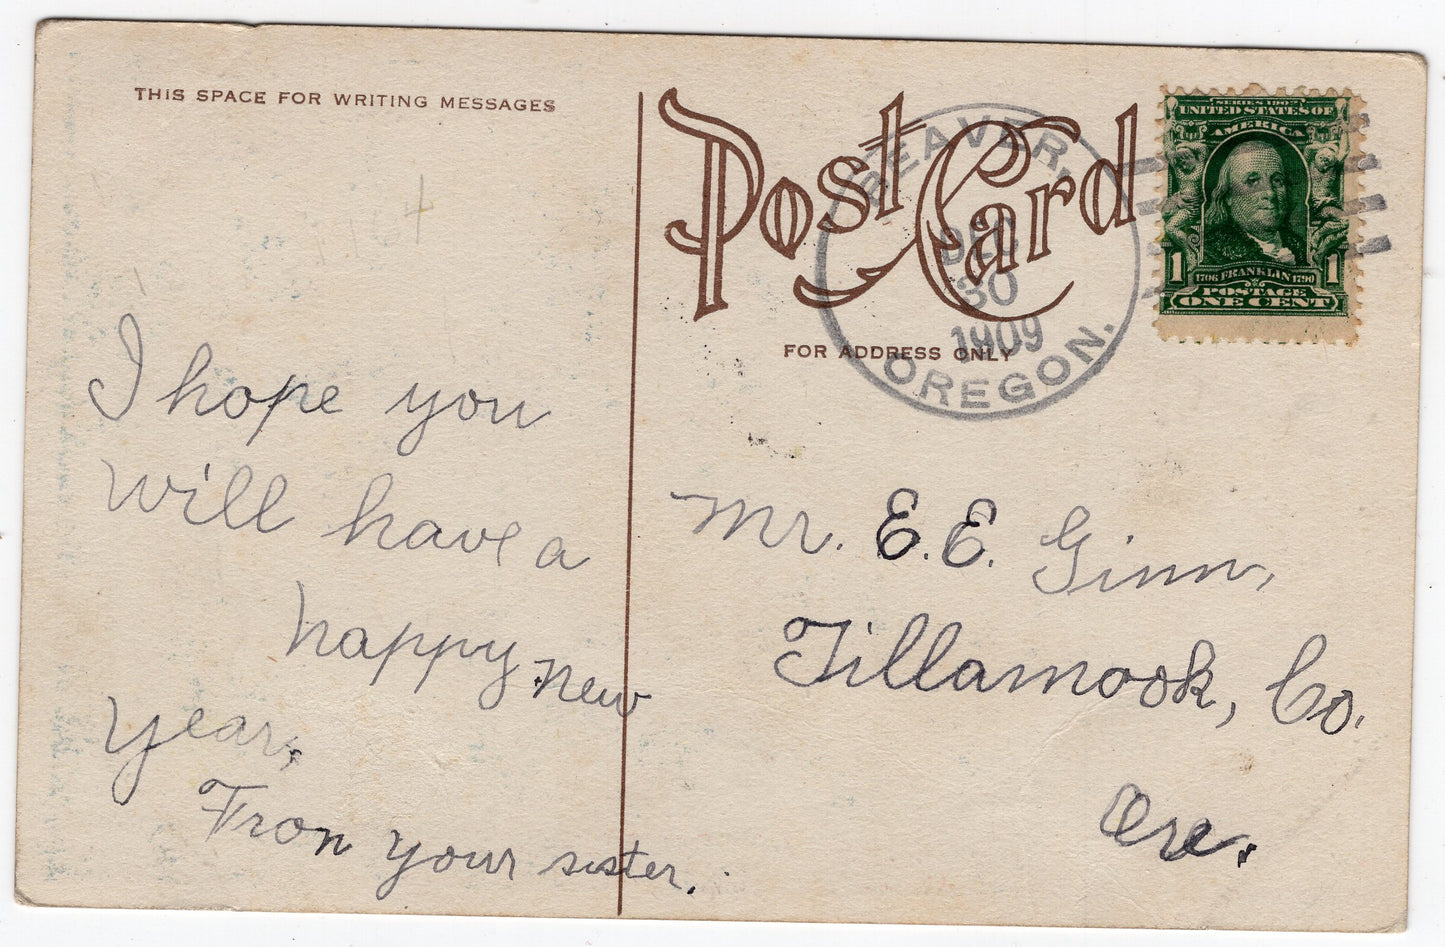 THIS SPACE FOR WRITING MESSAGES
Post Card
FOR ADDRESS ONLY
BEAVER,
DEC
30
1909
OREGON.
SERIES 1902
UNITED STATES OF
AMERICA
1 1
1706 FRANKLIN 1790
POSTAGE
ONE CENT
I hope you
will have a
happy new
year,
Fron your sister.
Mr. E. E. Ginn,
Tillamook, Co.
Ore.